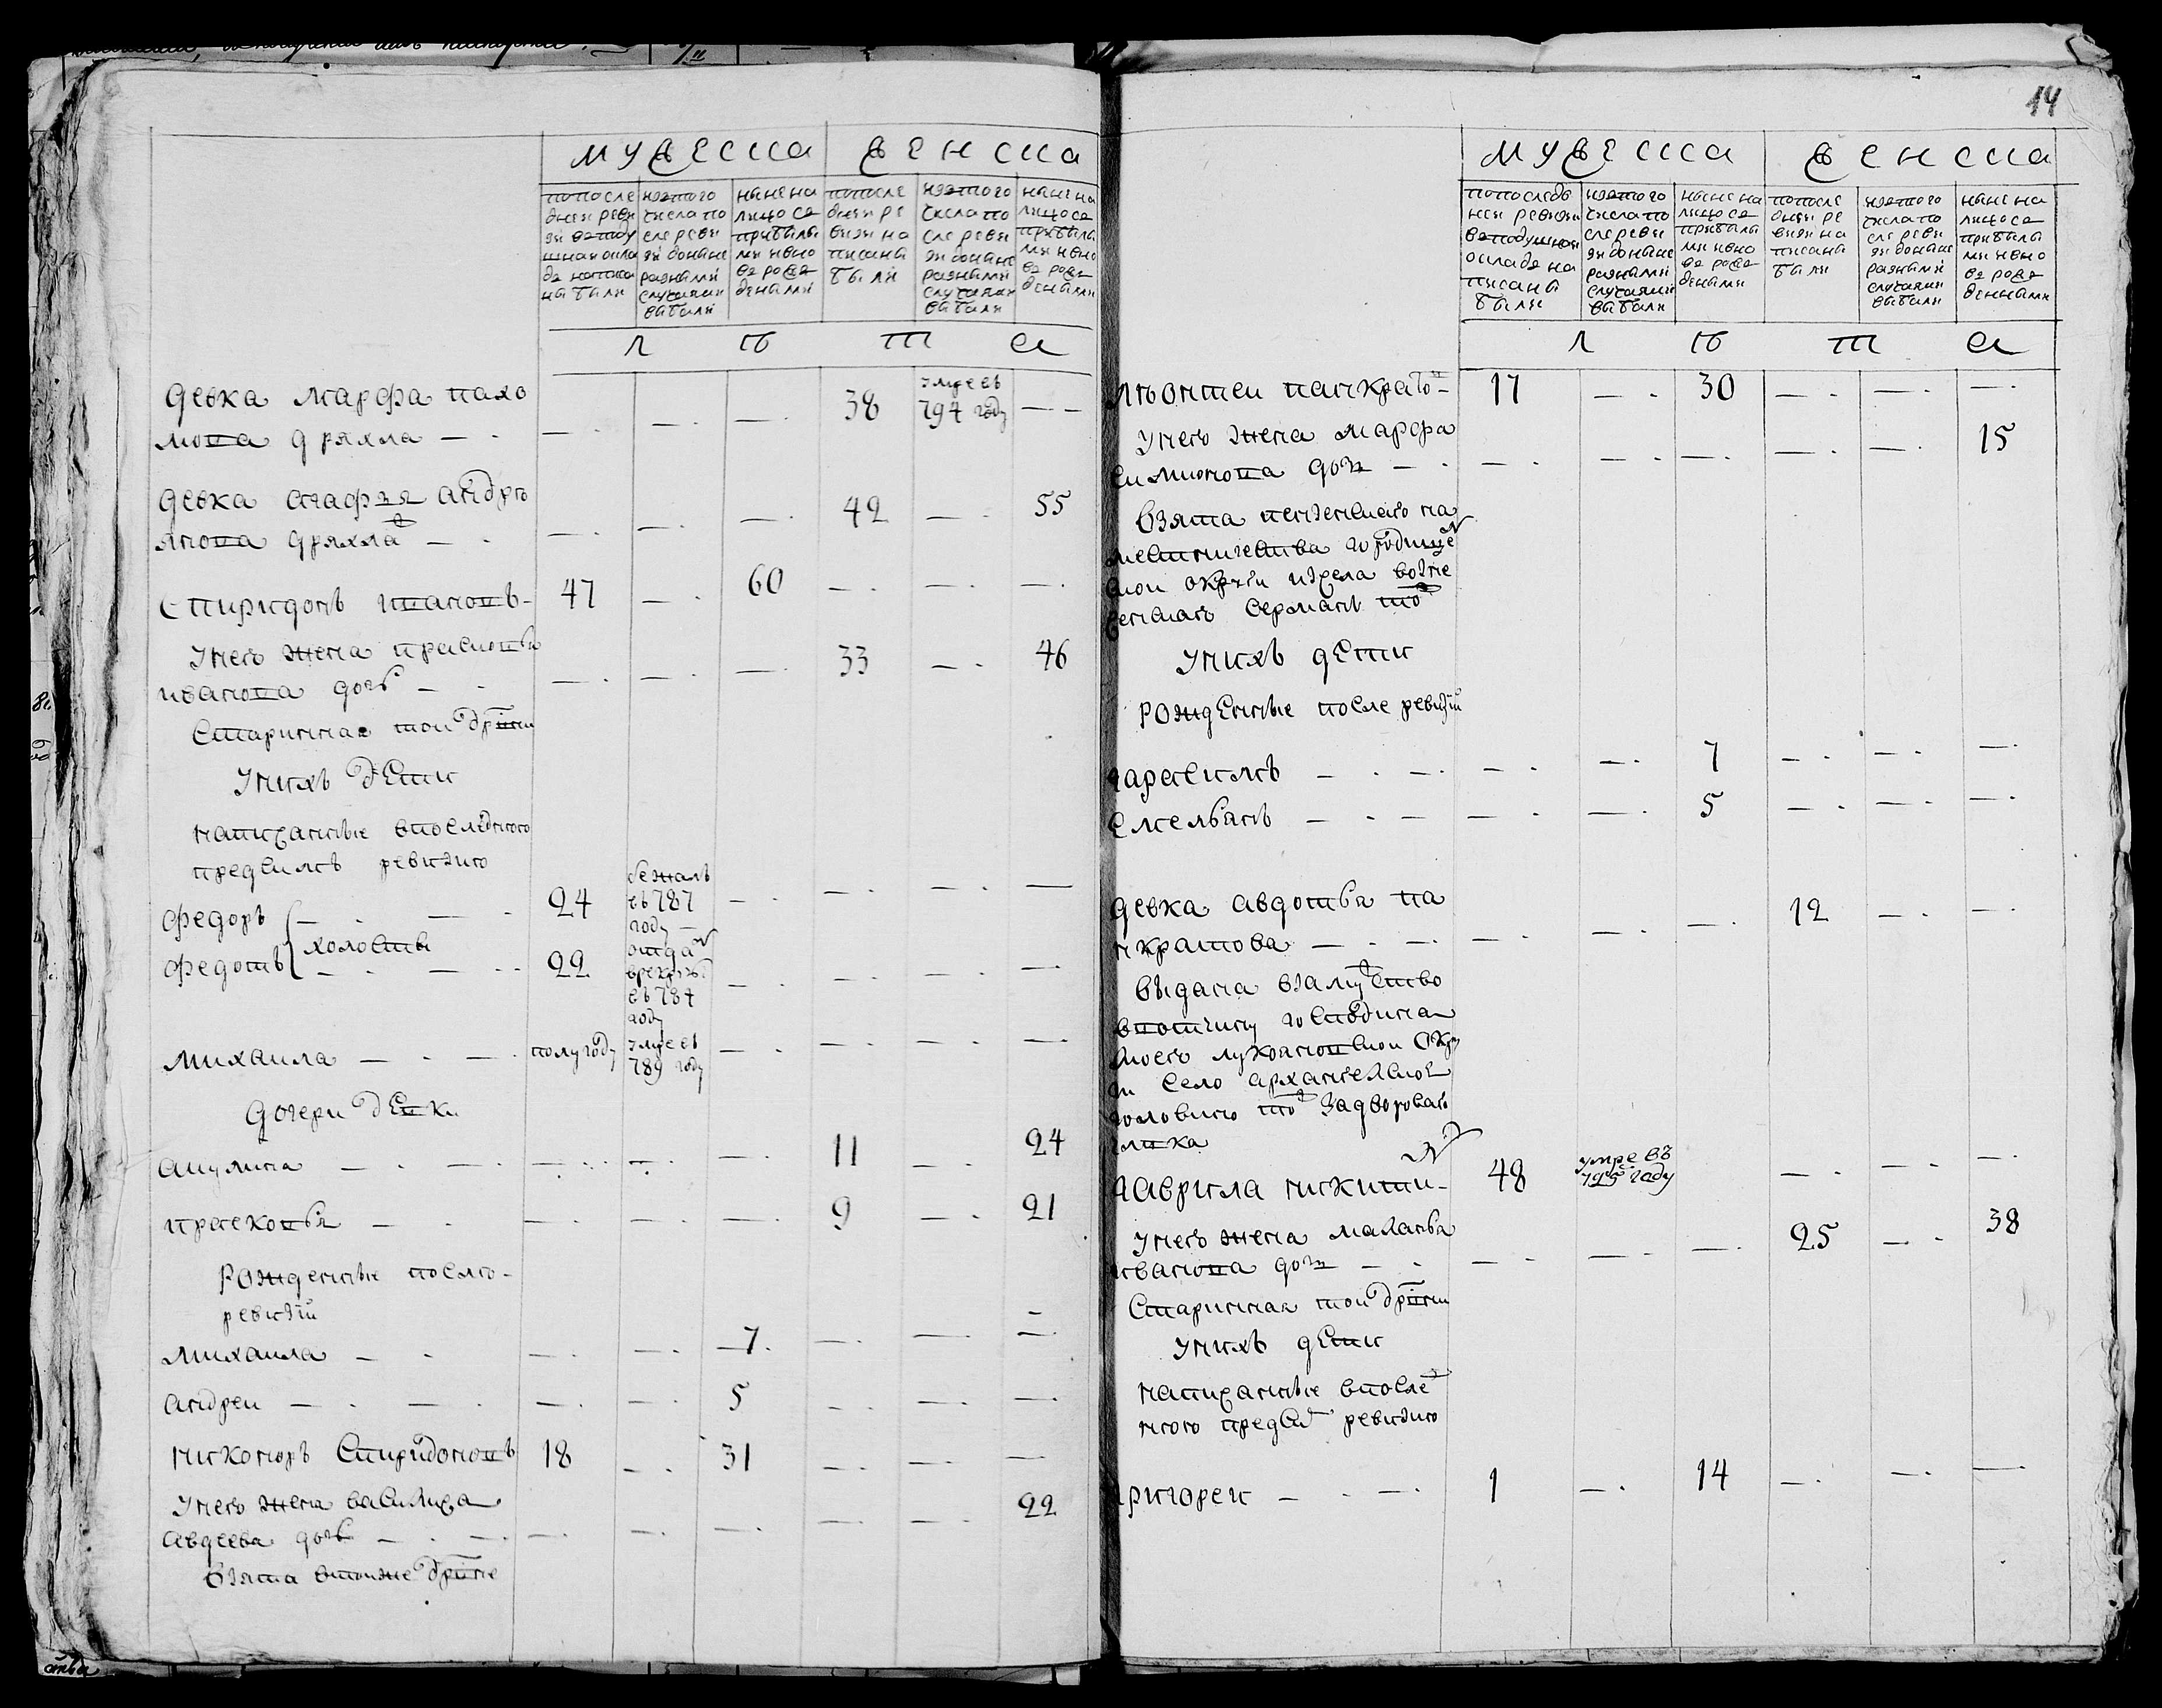 14
мужеска женска
попоследней ревизи в подушнай окладе написаны были
изэтого числа после ревизи до ныне разными случаями выбыли
ныне на лицо с прибылыми и вновь рожденными
попоследней ревизи написаны были
изэтого числа после ревизи до ныне разными случаями выбыли
ныне на лицо с прибылыми и вновь рожденными
л ѣ т а
девка марфа пахо 38 умре въ 794 году
мова дряхла
девка агафья андре 42 55
янова дряхла
спиридонъ 47 60
унего жена прасковья 33 46
иванова дочь
старинная той дрвни
унихъ дети
написанные впоследнюю
пред симъ ревизию
федоръ 24 бежалъ въ 787 году
холосты
федотъ 22 отда врекруты въ 787 году
михаила полугоду умре въ 789 году
дочери девки
акулина 11 24
прасковья 9 21
рожденные после
ревизии
михаила 7
андреи 5
никоноръ спиридоновъ 18 31
унего жена василиса 22
авдеева дочь
взята втойже дрвне
мужеска женска
попоследней ревизии в подушнай окладе написаны были
изэтого числа после ревизи до ныне разными случаями выбыли
ныне на лицо с прибылыми и вновь рожденными
попосле дней ревизи написаны были
изэтого числа после ревизи до ныне разными случаями выбыли
ныне на лицо с прибылыми и вновь рожденными
л ѣ т а
леонтеи панкрато 17 30
унего жена марфа 15
симионова дочь
взята пензенскаго на
местничества городище
скои округи изсела возне
сенскаго
унихъ дети
рожденные после ревизии
гарасимъ 7
емельянъ 5
девка авдотья па 12
нкратова
выдана взамужство
вотчину господина
моего лукояновскои окру
ги село архангелское
головино
гаврила никити 48 умре въ 795 году
унего жена маланья 25 38
иванова дочь
старинная той дрвни
унихъ дети
написанные впослед
нюю предси ревизию
григореи 1 14